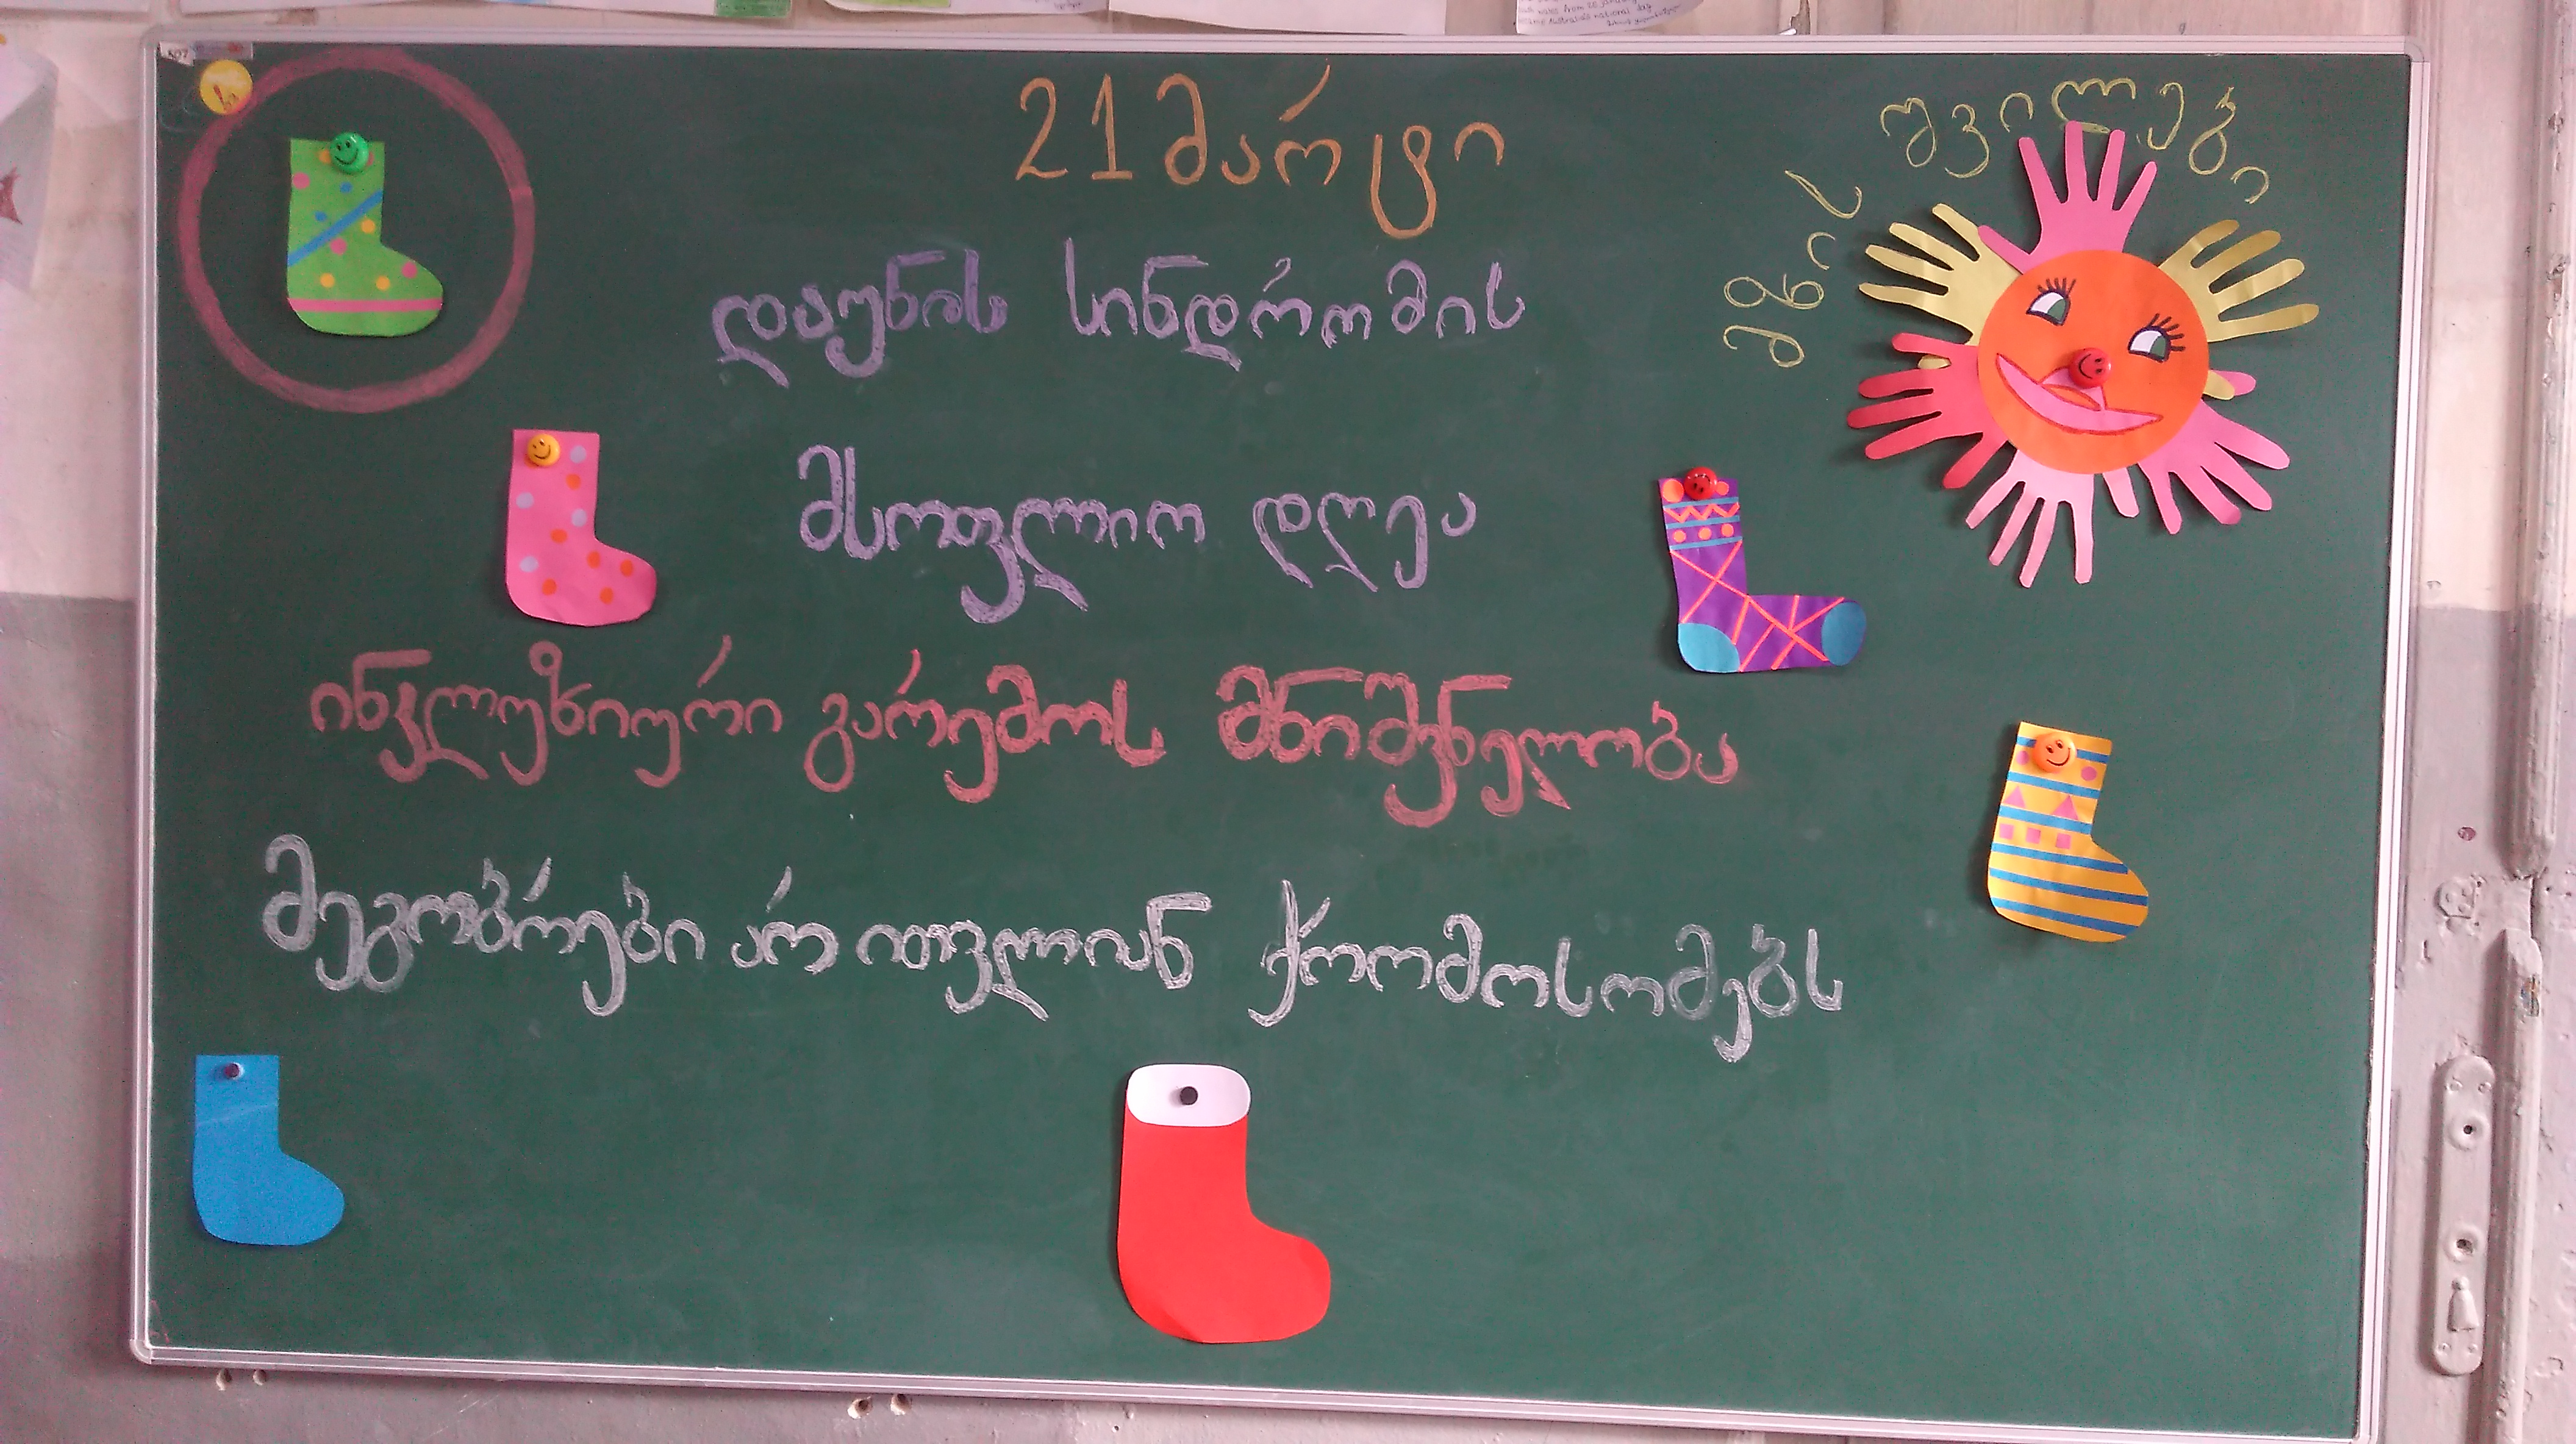 21 მარტი
მზის შვილები
დაუნის სინდრომის
მსოფლიო დღე
ინკლუზიური გარემოს მნიშვნელობა
მეგობრები არ ითვლიან ქრომოსომებს